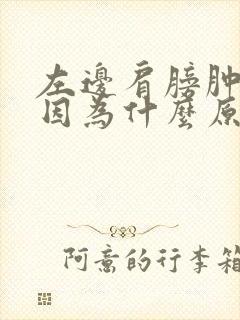 左邊肩膀肿
因為什麼原
阿意的行李箱